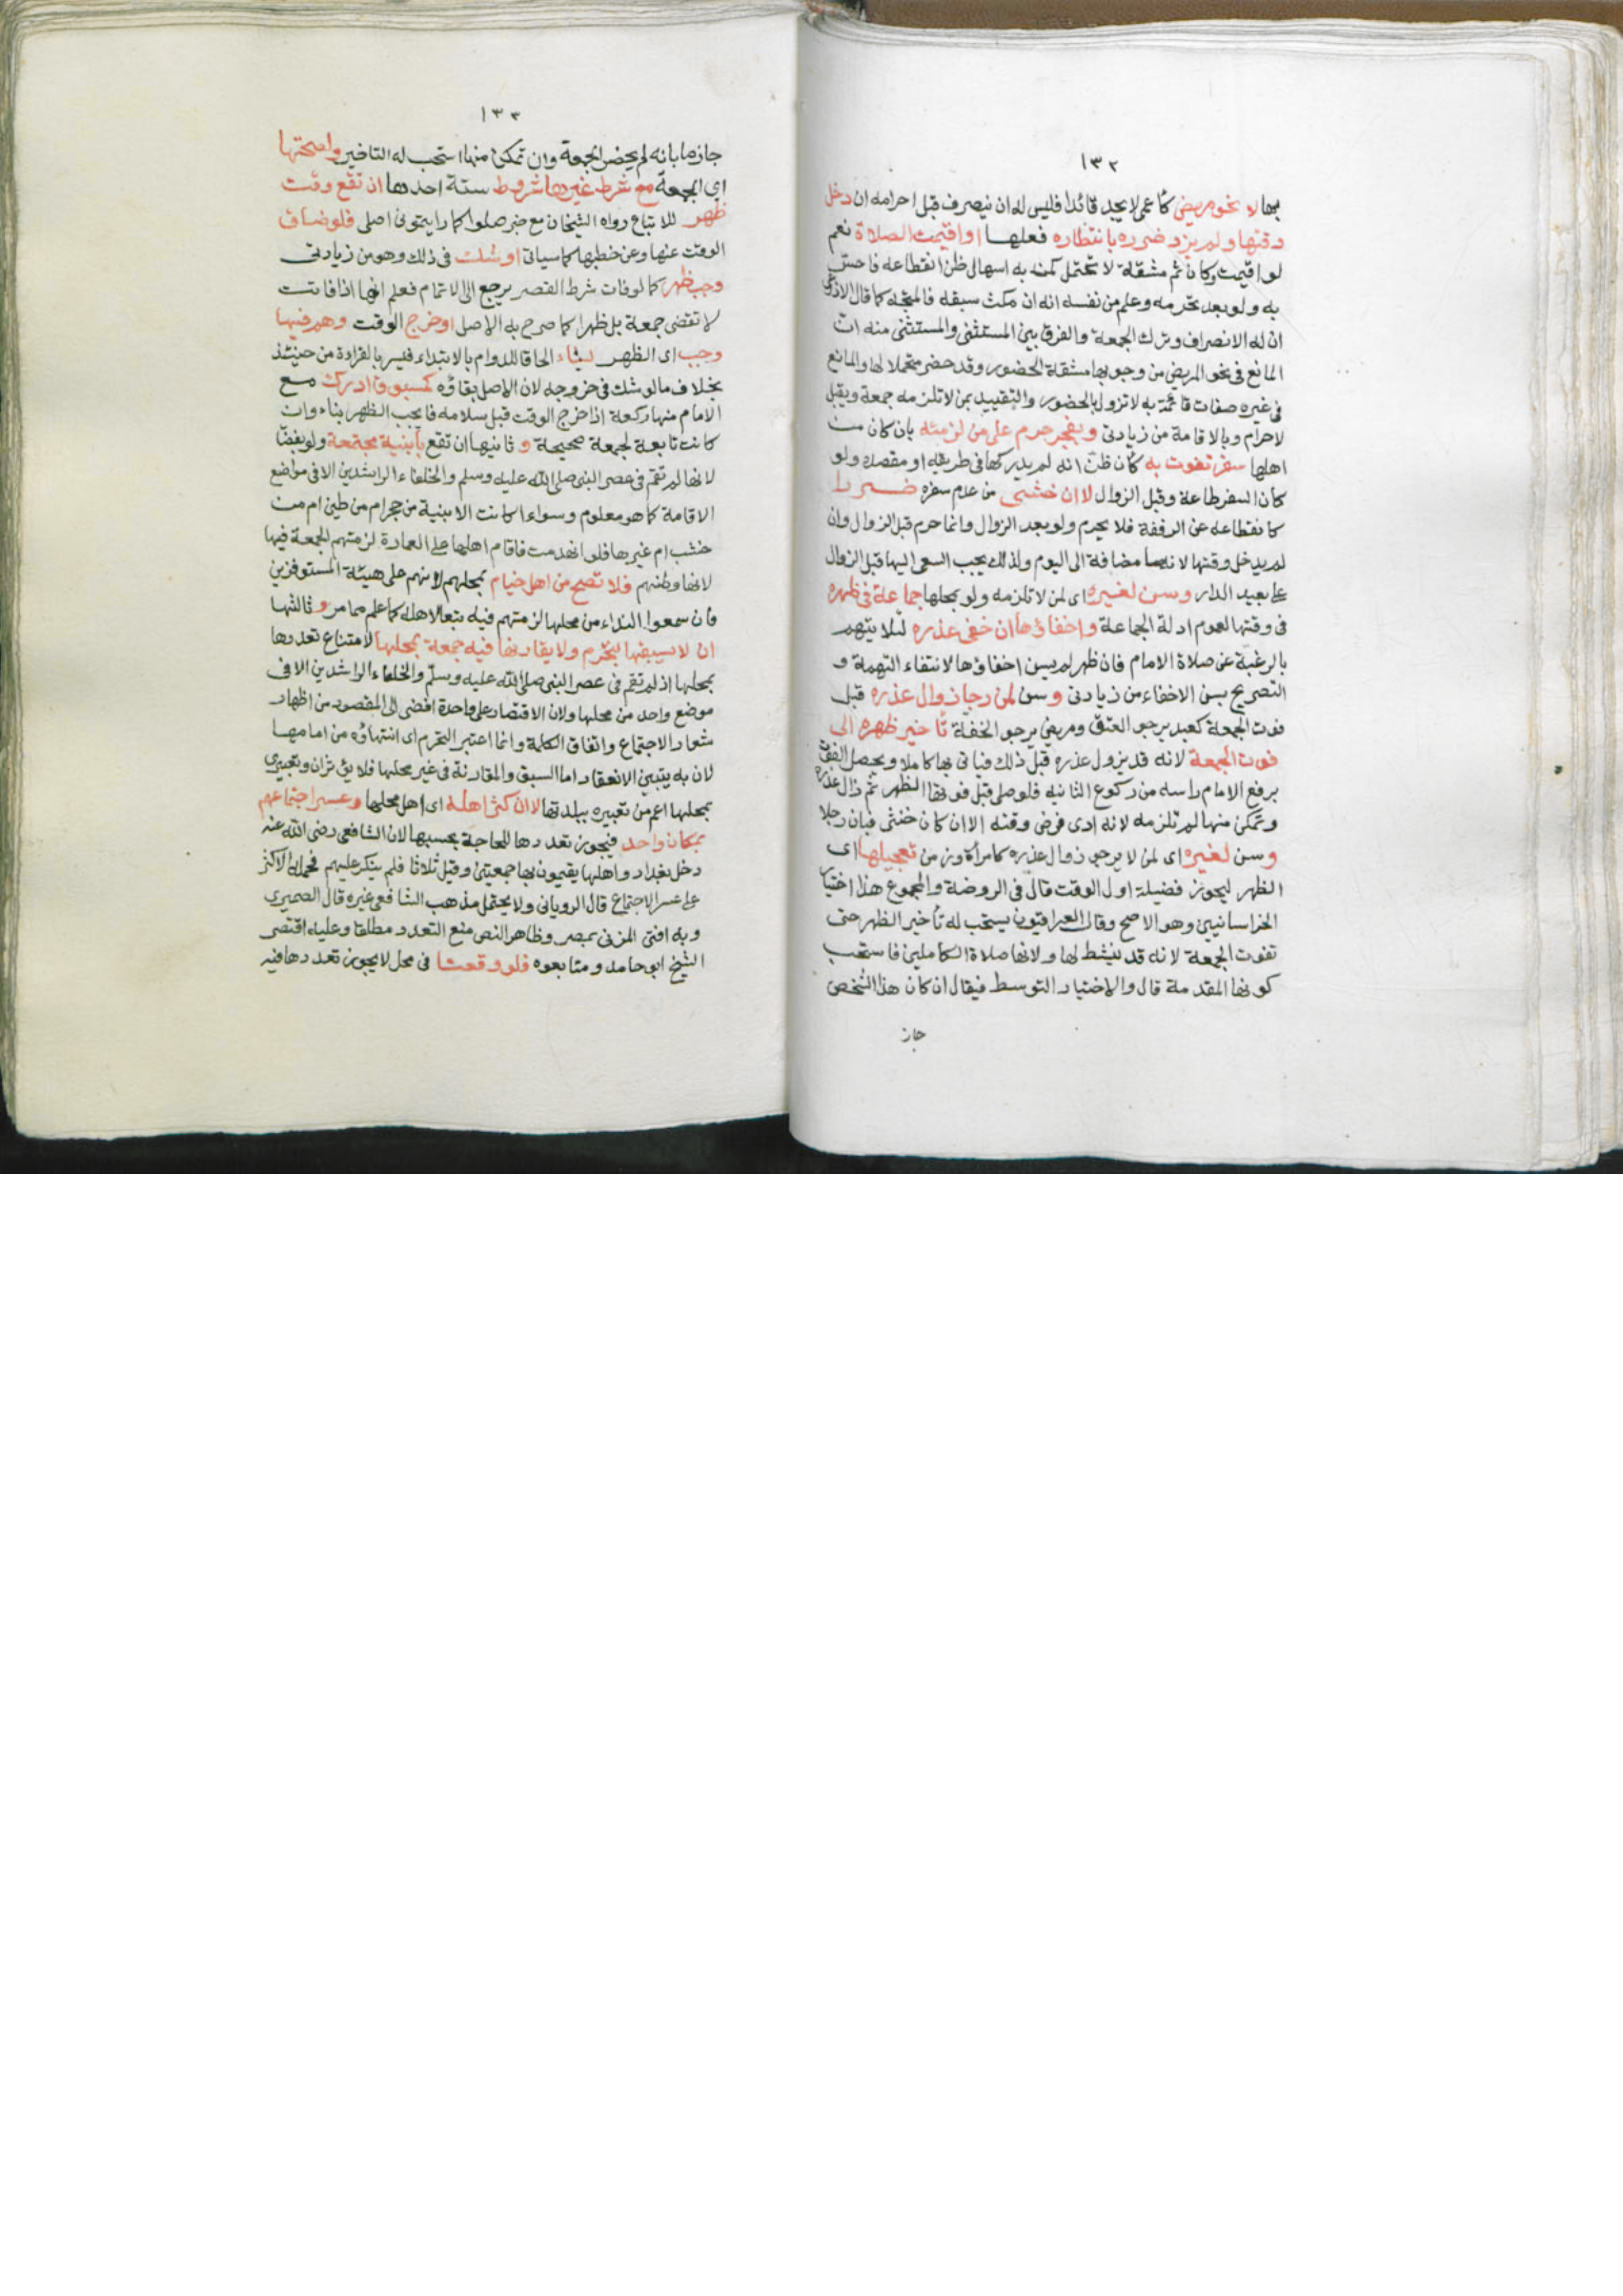 ١٣٢
بها لا نحو مريض كاعمى لا يجد قائدا فليس له ان ينصرف قبل احرامه ان دخل
وقتها ولم يزد ضرره بانتظاره فعلها او اقيمت الصلاة نعم
لو اقيمت وكان ثم مشقة لا تحتمل كمن به اسهال ظن انقطاعه فاحس
به ولو بعد تحرمه وعلم من نفسه انه ان مكث سبقه فالمتجه كما قال الاذرعى
ان له الانصراف وترك الجمعة والفرق بين المستثنى والمستثنى منه ان
المانع فى نحو المريض من وجوبها مشقة الحضور وقد حضر متحملا لها والمانع
فى غيره صفات قائمة به لا تزول بالحضور والتقييد بمن لا تلزمه جمعة وبقبل
لاحرام وبالاقامة من زيادتى وبفجر حرم على من لزمته بان كان من
اهلها سفر تفوت به كأن ظن انه لم يدركها فى طريقه او مقصده ولو
كان السفر طاعة وقبل الزوال لا ان خشى من عدم سفره ضررا
كانقطاعه عن الرفقة فلا يحرم ولو بعد الزوال وانما حرم قبل الزوال وان
لم يدخل وقتها لانها مضافة الى اليوم ولذلك يجب السعى اليها قبل الزوال
على بعيد الدار وسن لغيره اى لمن لا تلزمه ولو بمحلها جماعة فى ظهره
فى وقتها لعموم ادلة الجماعة واخفاؤها ان خفى عذره لئلا يتهم
بالرغبة عن صلاة الامام فان ظهر لم يسن اخفاؤها لانتفاء التهمة و
التصريح بسن الاخفاء من زيادتى وسن لمن رجا زوال عذره قبل
فوت الجمعة كعبد يرجو العتق ومريض يرجو الخفة تأخير ظهره الى
فوت الجمعة لانه قد يزول عذره قبل ذلك فياتى بها كاملا ويحصل الفوت
برفع الامام راسه من ركوع الثانيه فلو صلى قبل فوتها الظهر ثم زال عذره
وتمكن منها لم تلزمه لانه ادى فرض وقته الا ان كان خنثى فبان رجلا
وسن لغيره اى لمن لا يرجو زوال عذره كامراة وزمن تعجيلها اى
الظهر ليحوز فضيلة اول الوقت قال فى الروضة والمجموع هذا اختيار
الخراسانيين وهو الاصح وقال العراقيون يستحب له تأخير الظهر حتى
تفوت الجمعة لانه قد ينشط لها ولانها صلاة الكاملين فاستحب
كونها المقدمة قال والاختيار التوسط فيقال ان كان هذا الشخص
جاز
١٣٣
جازما بانه لم يحضر الجمعة وان تمكن منها استحب له التاخير ولصحتها
اى الجمعة مع شرط غيرها شروط ستة احدها ان تقع وقت
ظهر للاتباع رواه الشيخان مع خبر صلوا كما رايتمونى اصلى فلو ضاق
الوقت عنها وعن خطبتها كما سياتى او شك فى ذلك وهو من زيادتى
وجب ظهر كما لو فات شرط القصر يرجع الى الاتمام فعلم انها اذا فاتت
لا تقضى جمعة بل ظهرا كما صرح به الاصل او خرج الوقت وهم فيها
وجب اى الظهر بناء الحاقا للدوام بالابتداء فيسر بالقراءة من حينئذ
بخلاف ما لو شك فى خروجه لان الاصل بقاؤه كمسبوق ادرك مع
الامام منها ركعة اذا خرج الوقت قبل سلامه فانه يجب الظهر بناء وان
كانت تابعة لجمعة صحيحة و ثانيها ان تقع بأبنية مجتمعة ولو بفضا
لانها لم تقم فى عصر النبى صلى الله عليه وسلم والخلفاء الراشدين الا فى مواضع
الاقامة كما هو معلوم وسواء اكانت الابنية من حجر ام من طين ام من
خشب ام غيرها فلو انهدمت فاقام اهلها على العمارة لزمتهم الجمعة فيها
لانها وطنهم فلا تصح من اهل خيام بمحلهم لانهم على هيئة المستوفزين
فان سمعوا النداء من محلها لزمتهم فيه تبعا لاهله كما علم مما مر و ثالثها
ان لا يسبقها بتحرم ولا يقارنها فيه جمعة بمحلها لامتناع تعددها
بمحلها اذ لم تقم فى عصر النبى صلى الله عليه وسلم والخلفاء الراشدين الا فى
موضع واحد من محلها ولان الاقتصار على واحدة افضى الى المقصود من اظهار
شعار الاجتماع واتفاق الكلمة وانما اعتبر التحرم اى انتهاؤه من امامها
لان به يتبين الانعقاد اما السبق والمقارنة فى غير محلها فلا يؤثران وتعبيرى
بمحلها اعم من تعبيره ببلدتها لا ان كثر اهله اى اهل محلها وعسر اجتماعهم
بمكان واحد فيجوز تعددها للحاجة بحسبها لان الشافعى رضى الله عنه
دخل بغداد واهلها يقيمون بها جمعيتين وقيل ثلاثا فلم ينكر عليهم فحمله الاكثر
على عسر الاجتماع قال الرويانى ولا يحتمل مذهب الشافعى غيره قال الصيمرى
وبه افتى المزنى بمصر وظاهر النص منع التعدد مطلقا وعليه اقتصر
الشيخ ابو حامد ومتابعوه فلو وقعتا فى محل لا يجوز تعددها فيه